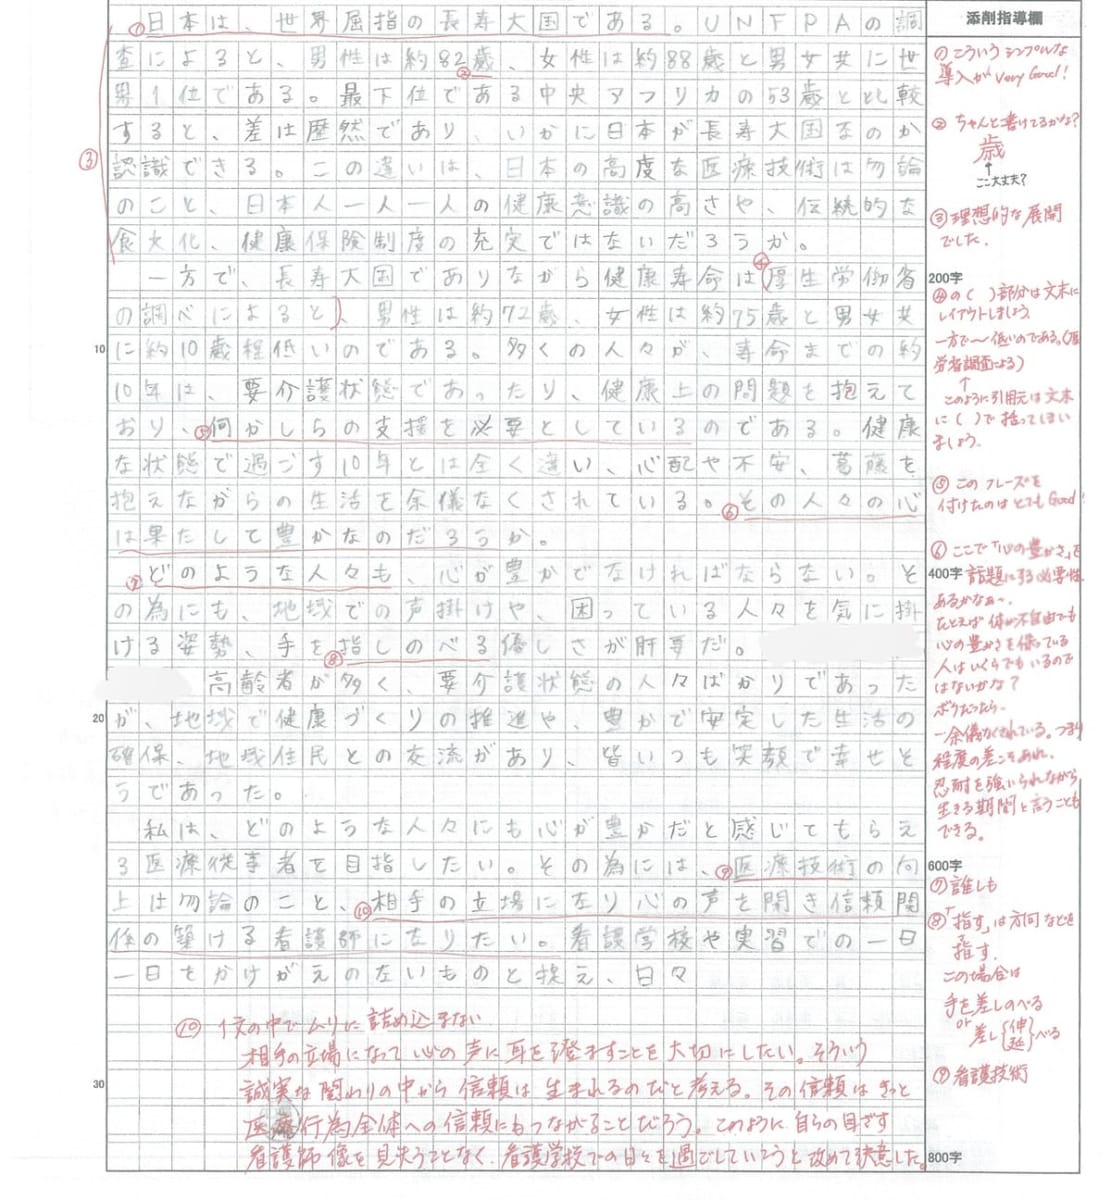 ①日本は、世界屈指の長寿大国である。UNFPAの調
査によると、男性は約82歳、女性は約88歳と男女共に世
界1位である。最下位である中央アフリカの53歳と比較
すると、差は歴然であり、いかに日本が長寿大国なのか
認識できる。この違いは、日本の高度な医療技術は勿論
のこと、日本人一人一人の健康意識の高さや、伝統的な
食文化、健康保険制度の充実ではないだろうか。
一方で、長寿大国でありながら健康寿命は④(厚生労働省
の調べによると)、男性は約72歳、女性は約75歳と男女共
10 に約10歳程低いのである。多くの人々が、寿命までの約
10年は、要介護状態であったり、健康上の問題を抱えて
おり、⑤何かしらの支援を必要としているのである。健康
な状態で過ごす10年とは全く違い、心配や不安、葛藤を
抱えながらの生活を余儀なくされている。⑥その人々の心
は果たして豊かなのだろうか。
⑦どのような人々も、心が豊かでなければならない。そ
の為にも、地域での声掛けや、困っている人々を気に掛
ける姿勢、手を⑧指しのべる優しさが肝要だ。
高齢者が多く、要介護状態の人々ばかりであった
20 が、地域で健康づくりの推進や、豊かで安定した生活の
確保、地域住民との交流があり、皆いつも笑顔で幸せそ
うであった。
私は、どのような人々にも心が豊かだと感じてもらえ
る医療従事者を目指したい。その為には、⑨医療技術の向
上は勿論のこと、⑩相手の立場になり心の声を聞き信頼関
係の築ける看護師になりたい。看護学校や実習での一日
一日をかけがえのないものと捉え、日々
⑩ 1文の中でムリに詰め込まない
相手の立場になって心の声に耳を澄ますことを大切にしたい。そういう
30 誠実な関わりの中から信頼は生まれるのだと考える。その信頼はきっと
医療行為全体への信頼にもつながることだろう。このように自らの目ざす
看護師像を見失うことなく、看護学校での日々を過ごしていこうと改めて決意した。
添削指導欄
① こういうシンプルな
導入がVery Good!
② ちゃんと書けてるかな?
歳
↑
ここ大丈夫?
③ 理想的な展開
でした。
200字
④の( )部分は文末に
レイアウトしましょう
一方で〜低いのである。(厚
労省調査による)
↑
このように引用元は文末
に( )で括ってしまい
ましょう。
⑤ このフレーズを
付けたのはとてもGood!
⑥ ここで「心の豊かさ」を
400字 話題にする必要性
あるかなぁ〜。
たとえば体が不自由でも
心の豊かさを保っている
人はいくらでもいるので
はないかな?
ボクだったら、
―余儀なくされている。つまり
程度の差こそあれ、
忍耐を強いられながら
生きる期間と言うことも
できる。
600字
⑦ 誰しも
⑧「指す」は方向などを
指す.
この場合は
手を差しのべる
or
差し{伸 延}べる
⑨ 看護技術
800字
③
②